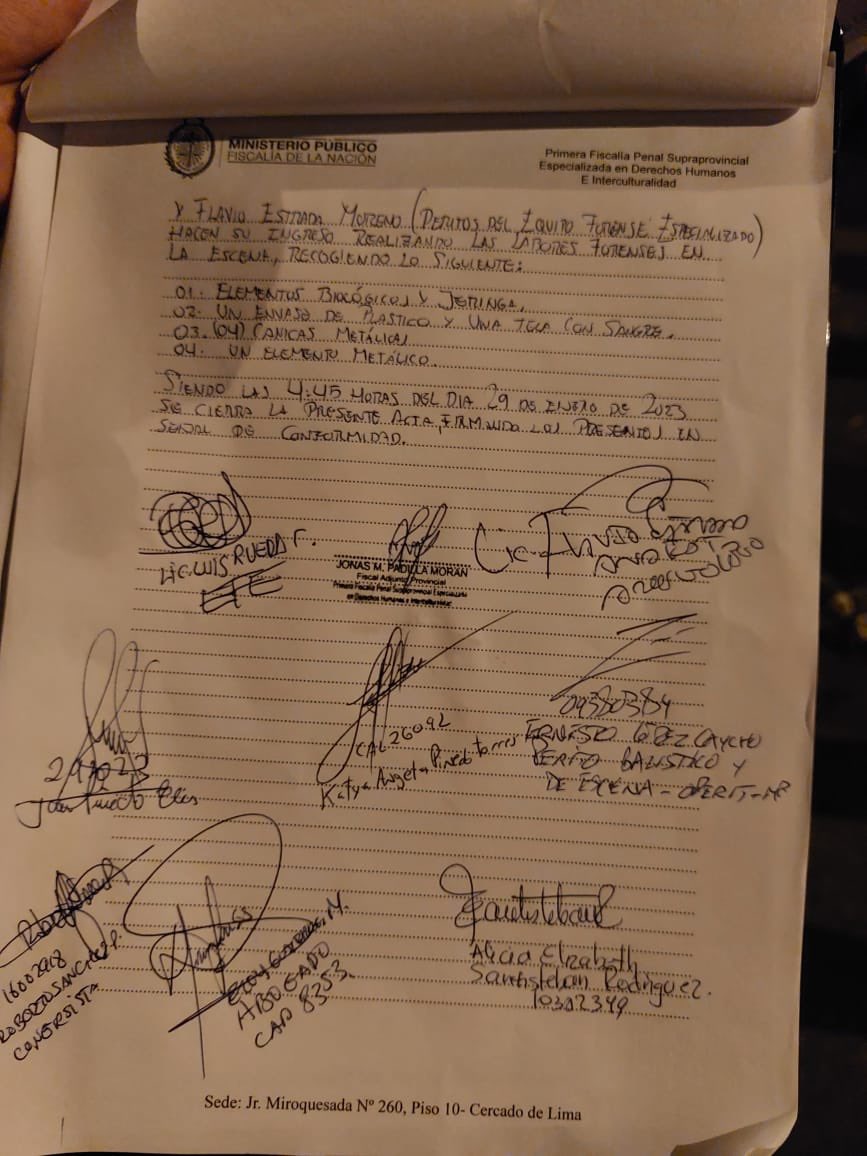 MINISTERIO PÚBLICO
FISCALÍA DE LA NACIÓN
Primera Fiscalía Penal Supraprovincial
Especializada en Derechos Humanos
E Interculturalidad
Y FLAVIO ESTRADA MORENO (PERITOS DEL EQUIPO FORENSE ESPECIALIZADO)
HACEN SU INGRESO REALIZANDO LAS LABORES FORENSES EN
LA ESCENA, RECOGIENDO LO SIGUIENTE:
01. ELEMENTOS BIOLÓGICOS Y JERINGA.
02. UN ENVASE DE PLASTICO Y UNA TELA CON SANGRE.
03. (04) CANICAS METÁLICAS
04. UN ELEMENTO METÁLICO.
SIENDO LAS 4:45 HORAS DEL DIA 29 DE ENERO DE 2023
SE CIERRA LA PRESENTE ACTA, FIRMANDO LOS PRESENTES EN
SEÑAL DE CONFORMIDAD.
LIC. LUIS RUEDA C.
EFE
JONAS M. PADILLA MORAN
Fiscal Adjunto Provincial
Primera Fiscalía Penal Supraprovincial Especializada
en Derechos Humanos e Interculturalidad
Lic. Flavio Estrada
ARQUEOLOGO
CAL 26092
Katya Angela Pinedo Torres
09380384
ERNESTO LÓPEZ CAYCHO
PERITO BALISTICO Y
DE ESCENA - OPERIT-MP
16002918
ROBERTO SANCHEZ P.
CONGRESISTA
ELOY M.
ABOGADO
CAA 8353
Alicia Elizabeth
Santisteban Rodriguez.
10302349
Sede: Jr. Miroquesada Nº 260, Piso 10- Cercado de Lima